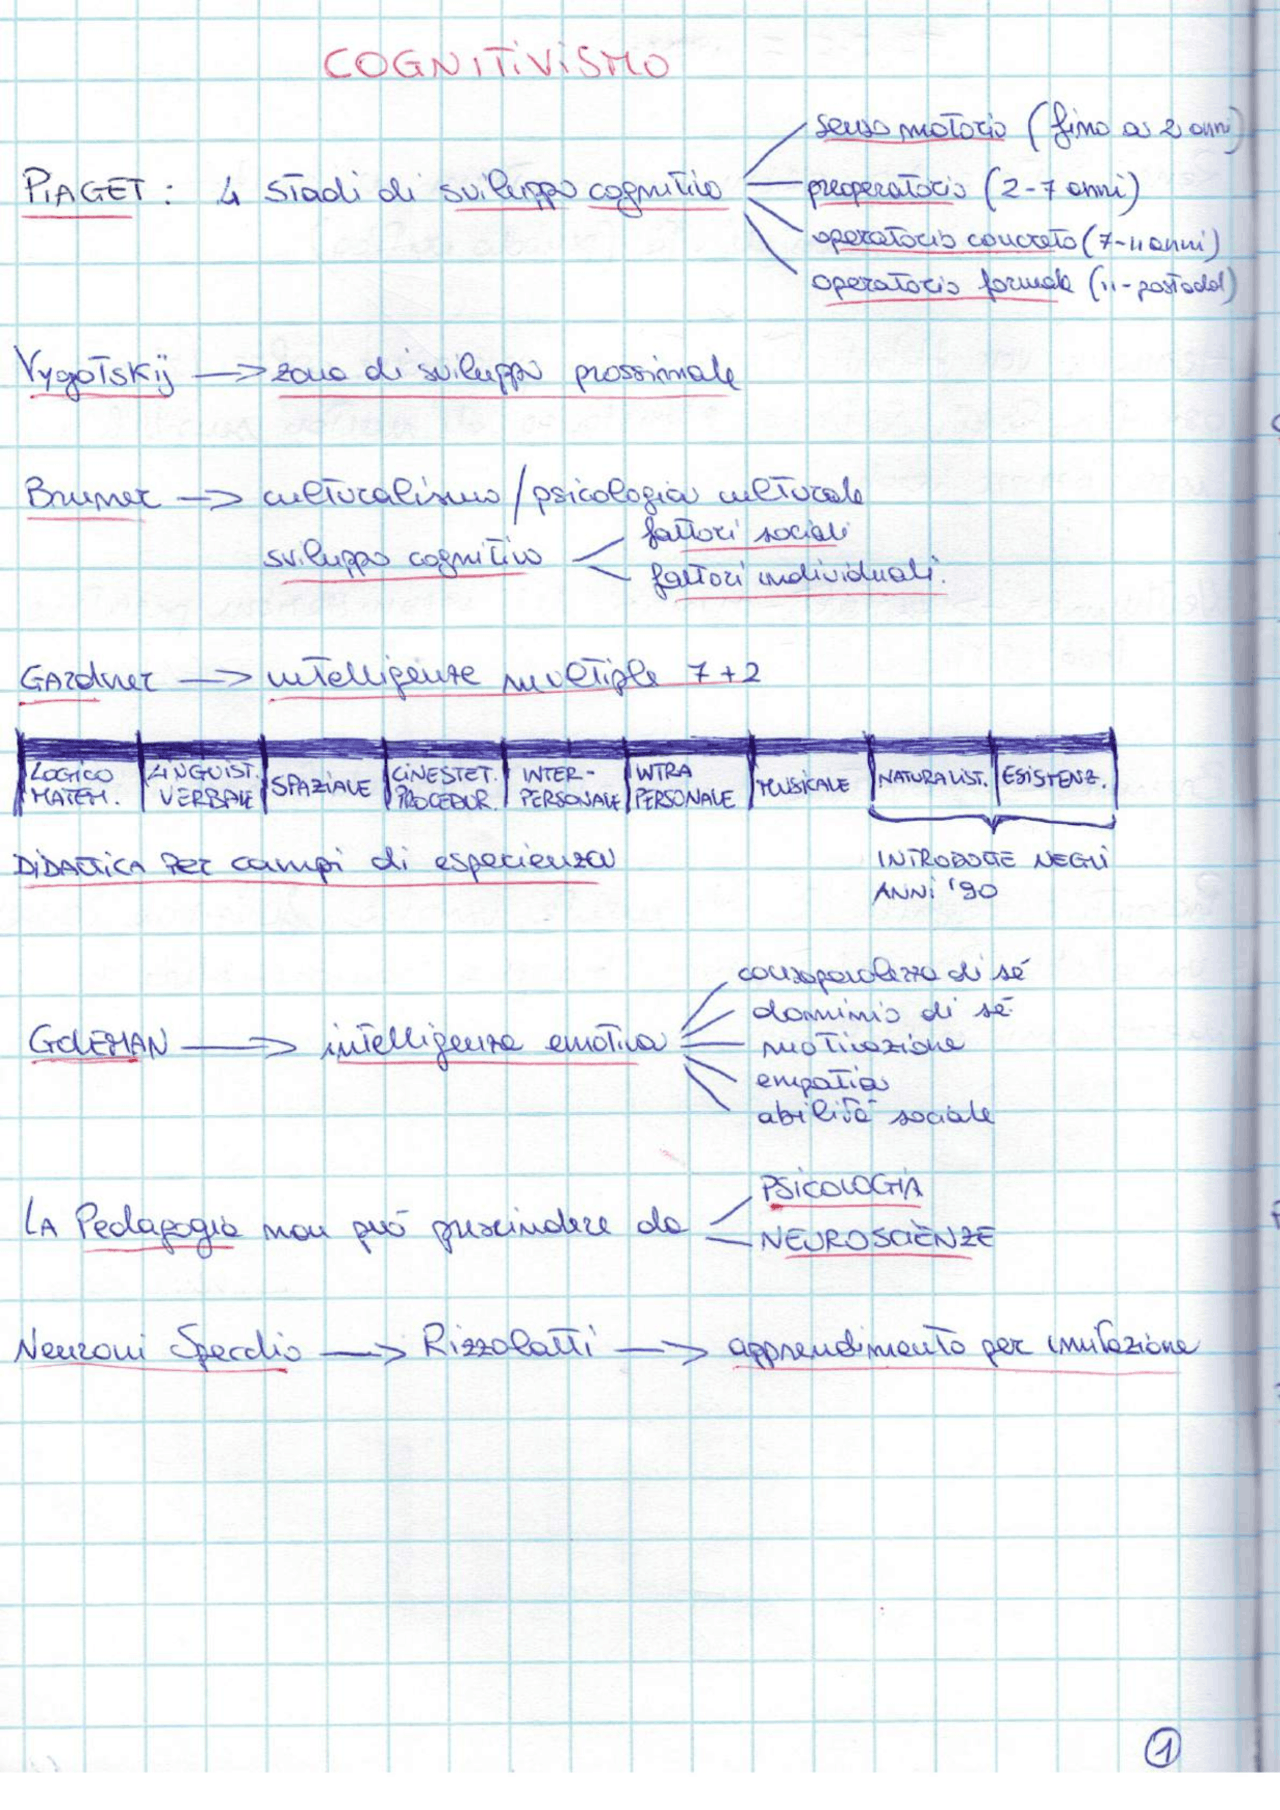 COGNITIVISMO
senso motorio (fino a 2 anni)
PIAGET : 4 stadi di sviluppo cognitivo
preoperatorio (2-7 anni)
operatorio concreto (7-11 anni)
operatorio formale (11-postadol)
Vygotskij → zona di sviluppo prossimale
Bruner → culturalismo / psicologia culturale
sviluppo cognitivo
fattori sociali
fattori individuali.
Gardner → intelligenze multiple 7+2
LOGICO MATEM.
LINGUIST. VERBALE
SPAZIALE
CINESTET. PROCEDUR.
INTER-PERSONALE
INTRA PERSONALE
MUSICALE
NATURALIST.
ESISTENZ.
DIDATTICA Per campi di esperienza
INTRODOTTE NEGLI
ANNI '90
consapevolezza di sé
dominio di sé
GOLEMAN → intelligenza emotiva
motivazione
empatia
abilità sociale
PSICOLOGIA
LA Pedagogia non può prescindere da
NEUROSCIENZE
Neuroni Specchio → Rizzolatti → apprendimento per imitazione
1